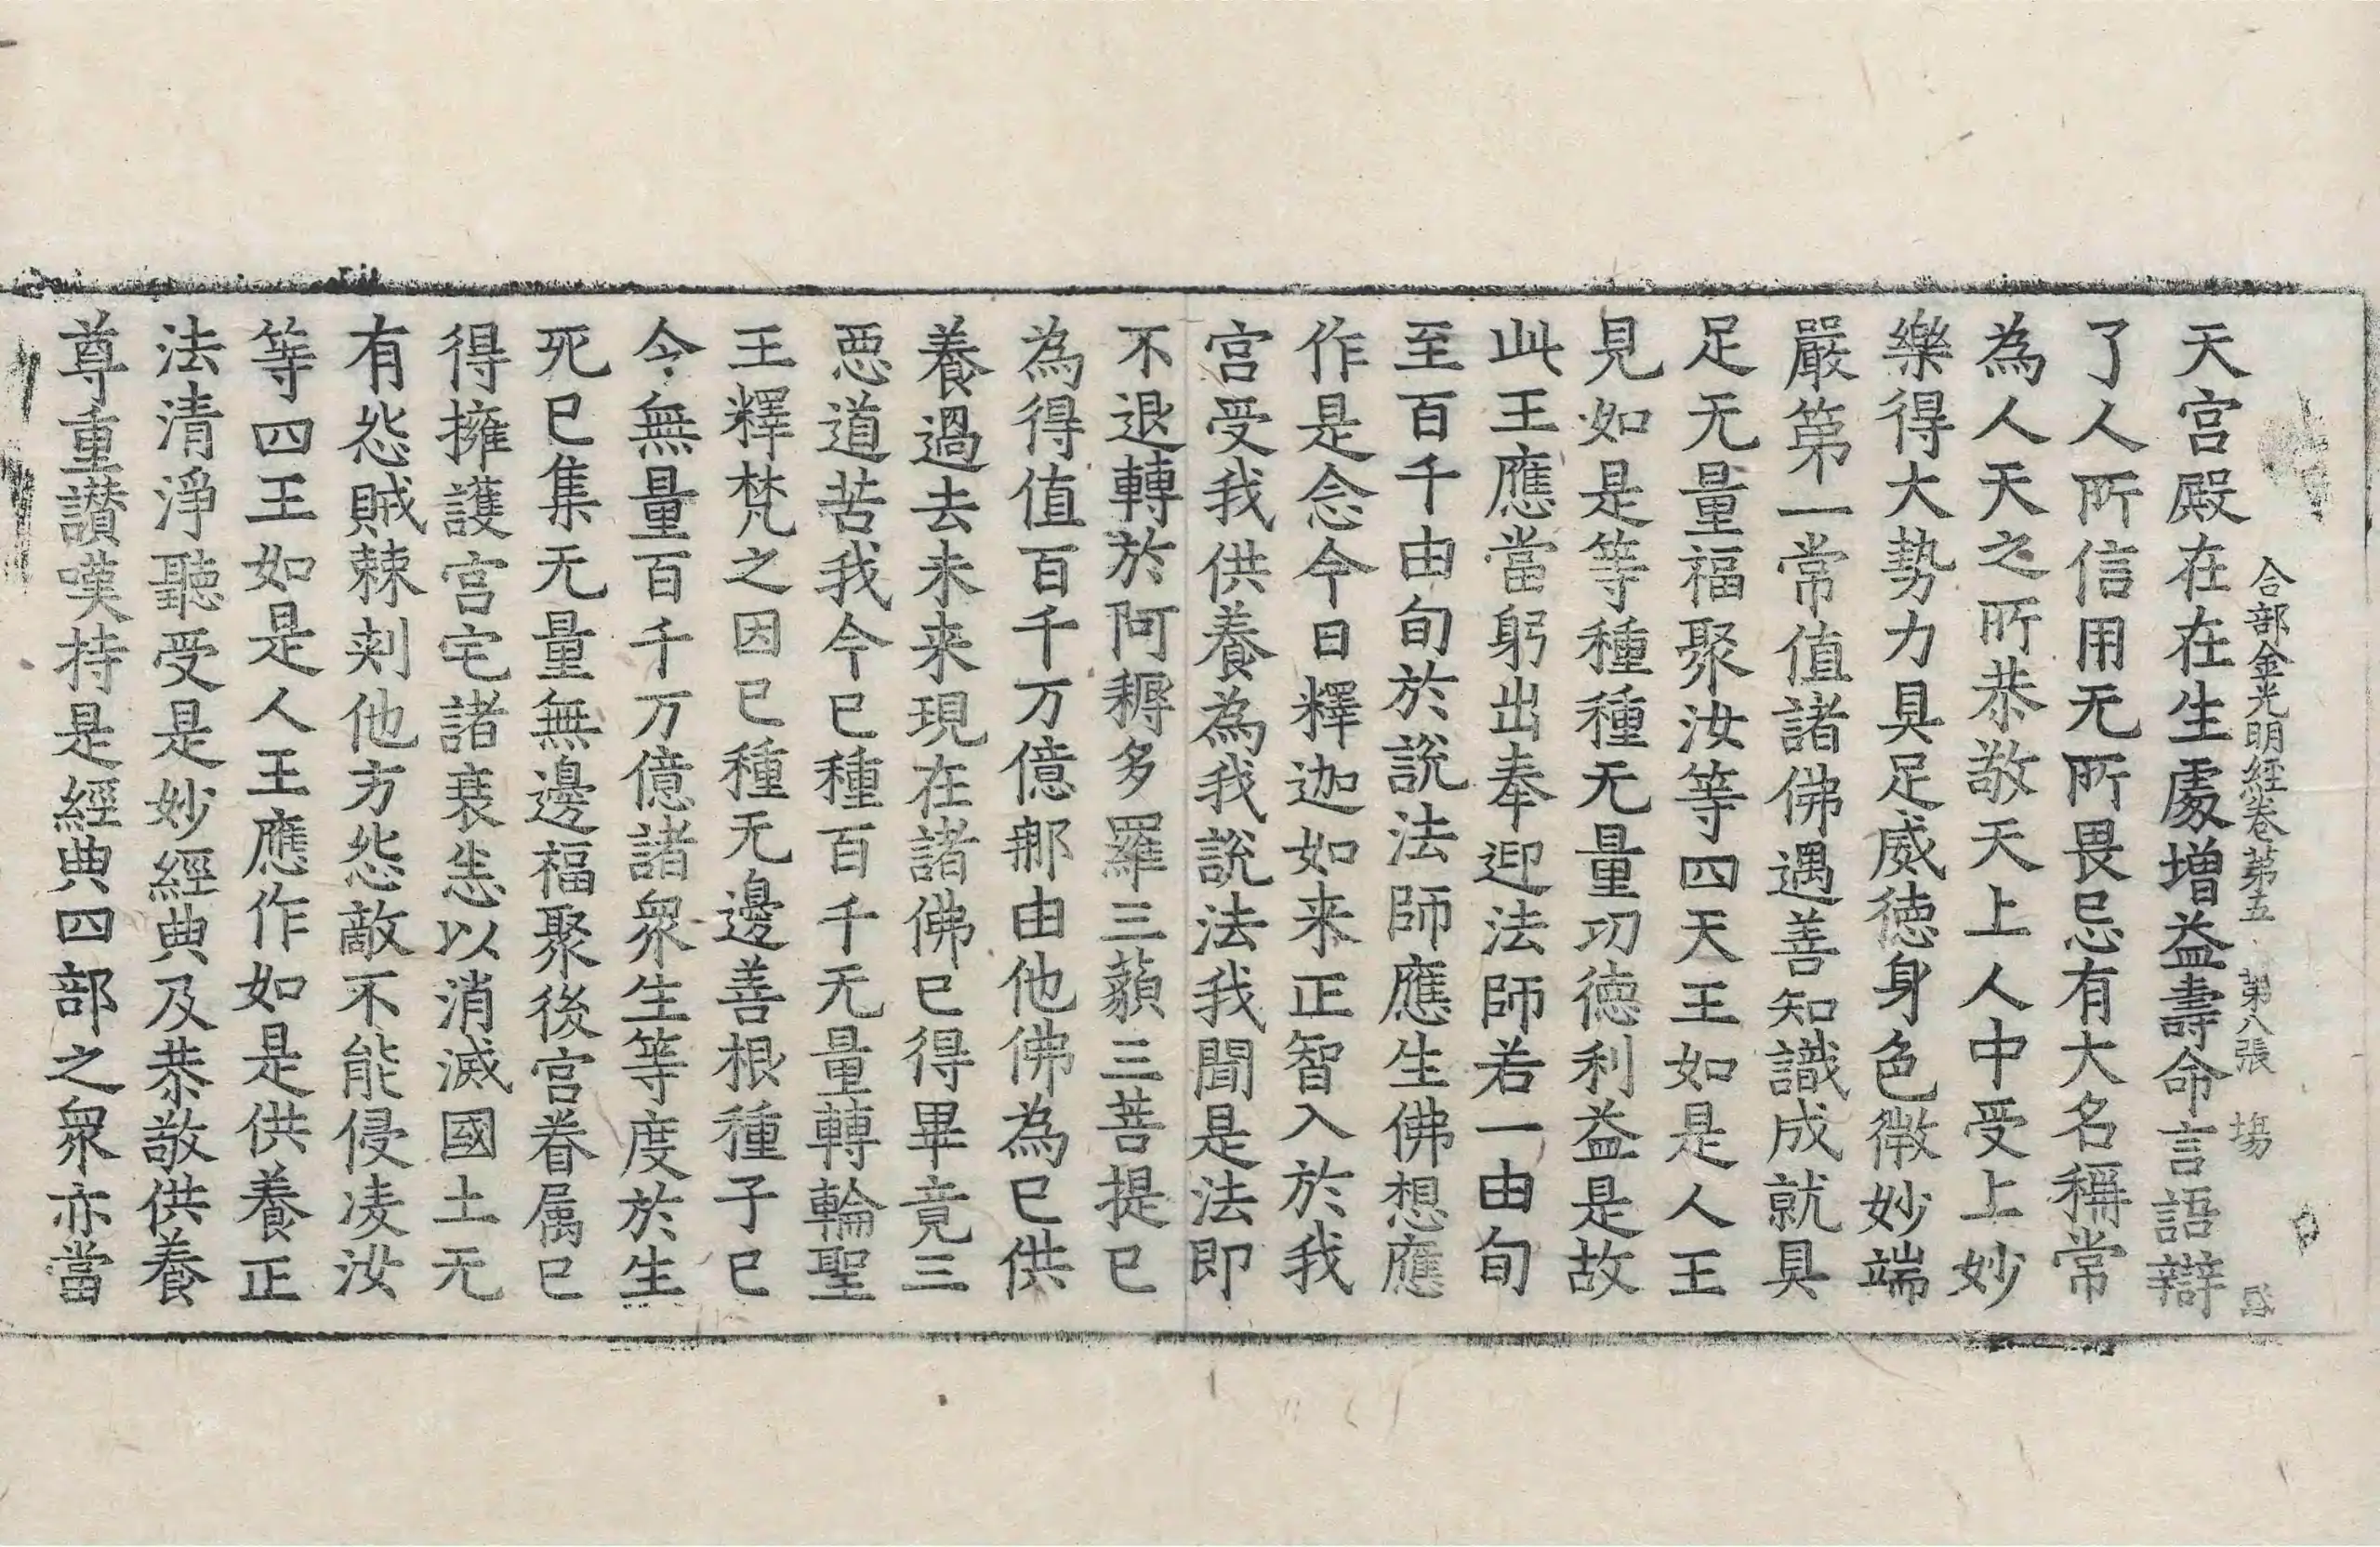 合部金光明經卷第五 第八張 場
天宮殿在在生處增益壽命言語辯
了人所信用无所畏忌有大名稱常
為人天之所恭敬天上人中受上妙
樂得大勢力具足威德身色微妙端
嚴第一常值諸佛遇善知識成就具
足无量福聚汝等四天王如是人王
見如是等種種无量功德利益是故
此王應當躬出奉迎法師若一由旬
至百千由旬於說法師應生佛想應
作是念今日釋迦如来正智入於我
宮受我供養為我說法我聞是法即
不退轉於阿耨多羅三藐三菩提已
為得值百千万億那由他佛為已供
養過去未来現在諸佛已得畢竟三
惡道苦我今已種百千无量轉輪聖
王釋梵之因已種无邊善根種子已
今無量百千万億諸眾生等度於生
死已集无量無邊福聚後宮眷属已
得擁護宮宅諸衰恙以消滅國土无
有怨賊棘刺他方怨敵不能侵凌汝
等四王如是人王應作如是供養正
法清淨聽受是妙經典及恭敬供養
尊重讃嘆持是經典四部之眾亦當